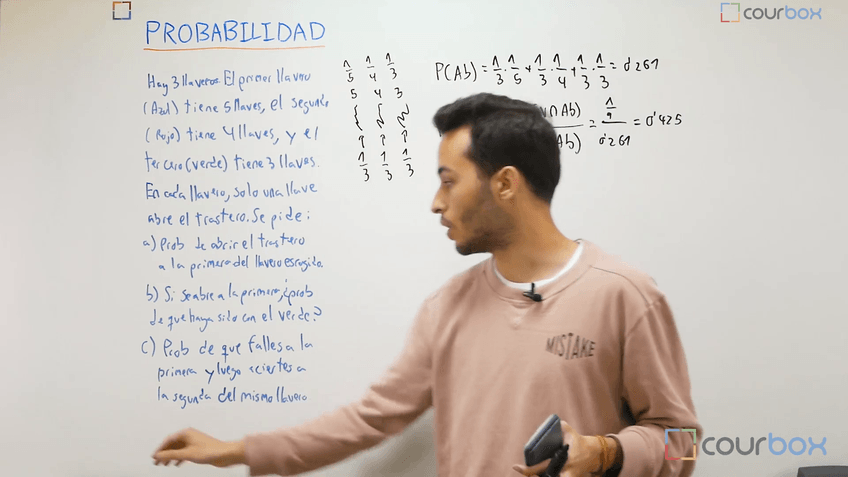 PROBABILIDAD
courbox
Hay 3 llaveros. El primer llavero
(Azul) tiene 5 llaves, el segundo
(Rojo) tiene 4 llaves, y el
tercero (verde) tiene 3 llaves.
En cada llavero, solo una llave
abre el trastero. Se pide:
a) Prob de abrir el trastero
a la primera del llavero escogido.
b) Si se abre a la primera, ¿prob
de que haya sido con el verde?
c) Prob de que falles a la
primera y luego aciertes a
la segunda del mismo llavero
1/5 1/4 1/3
5 4 3
1/3 1/3 1/3
P(Ab) = 1/3 · 1/5 + 1/3 · 1/4 + 1/3 · 1/3 = 0'261
∩ Ab) / Ab) = 1/9 / 0'261 = 0'425
MISTAKE
courbox